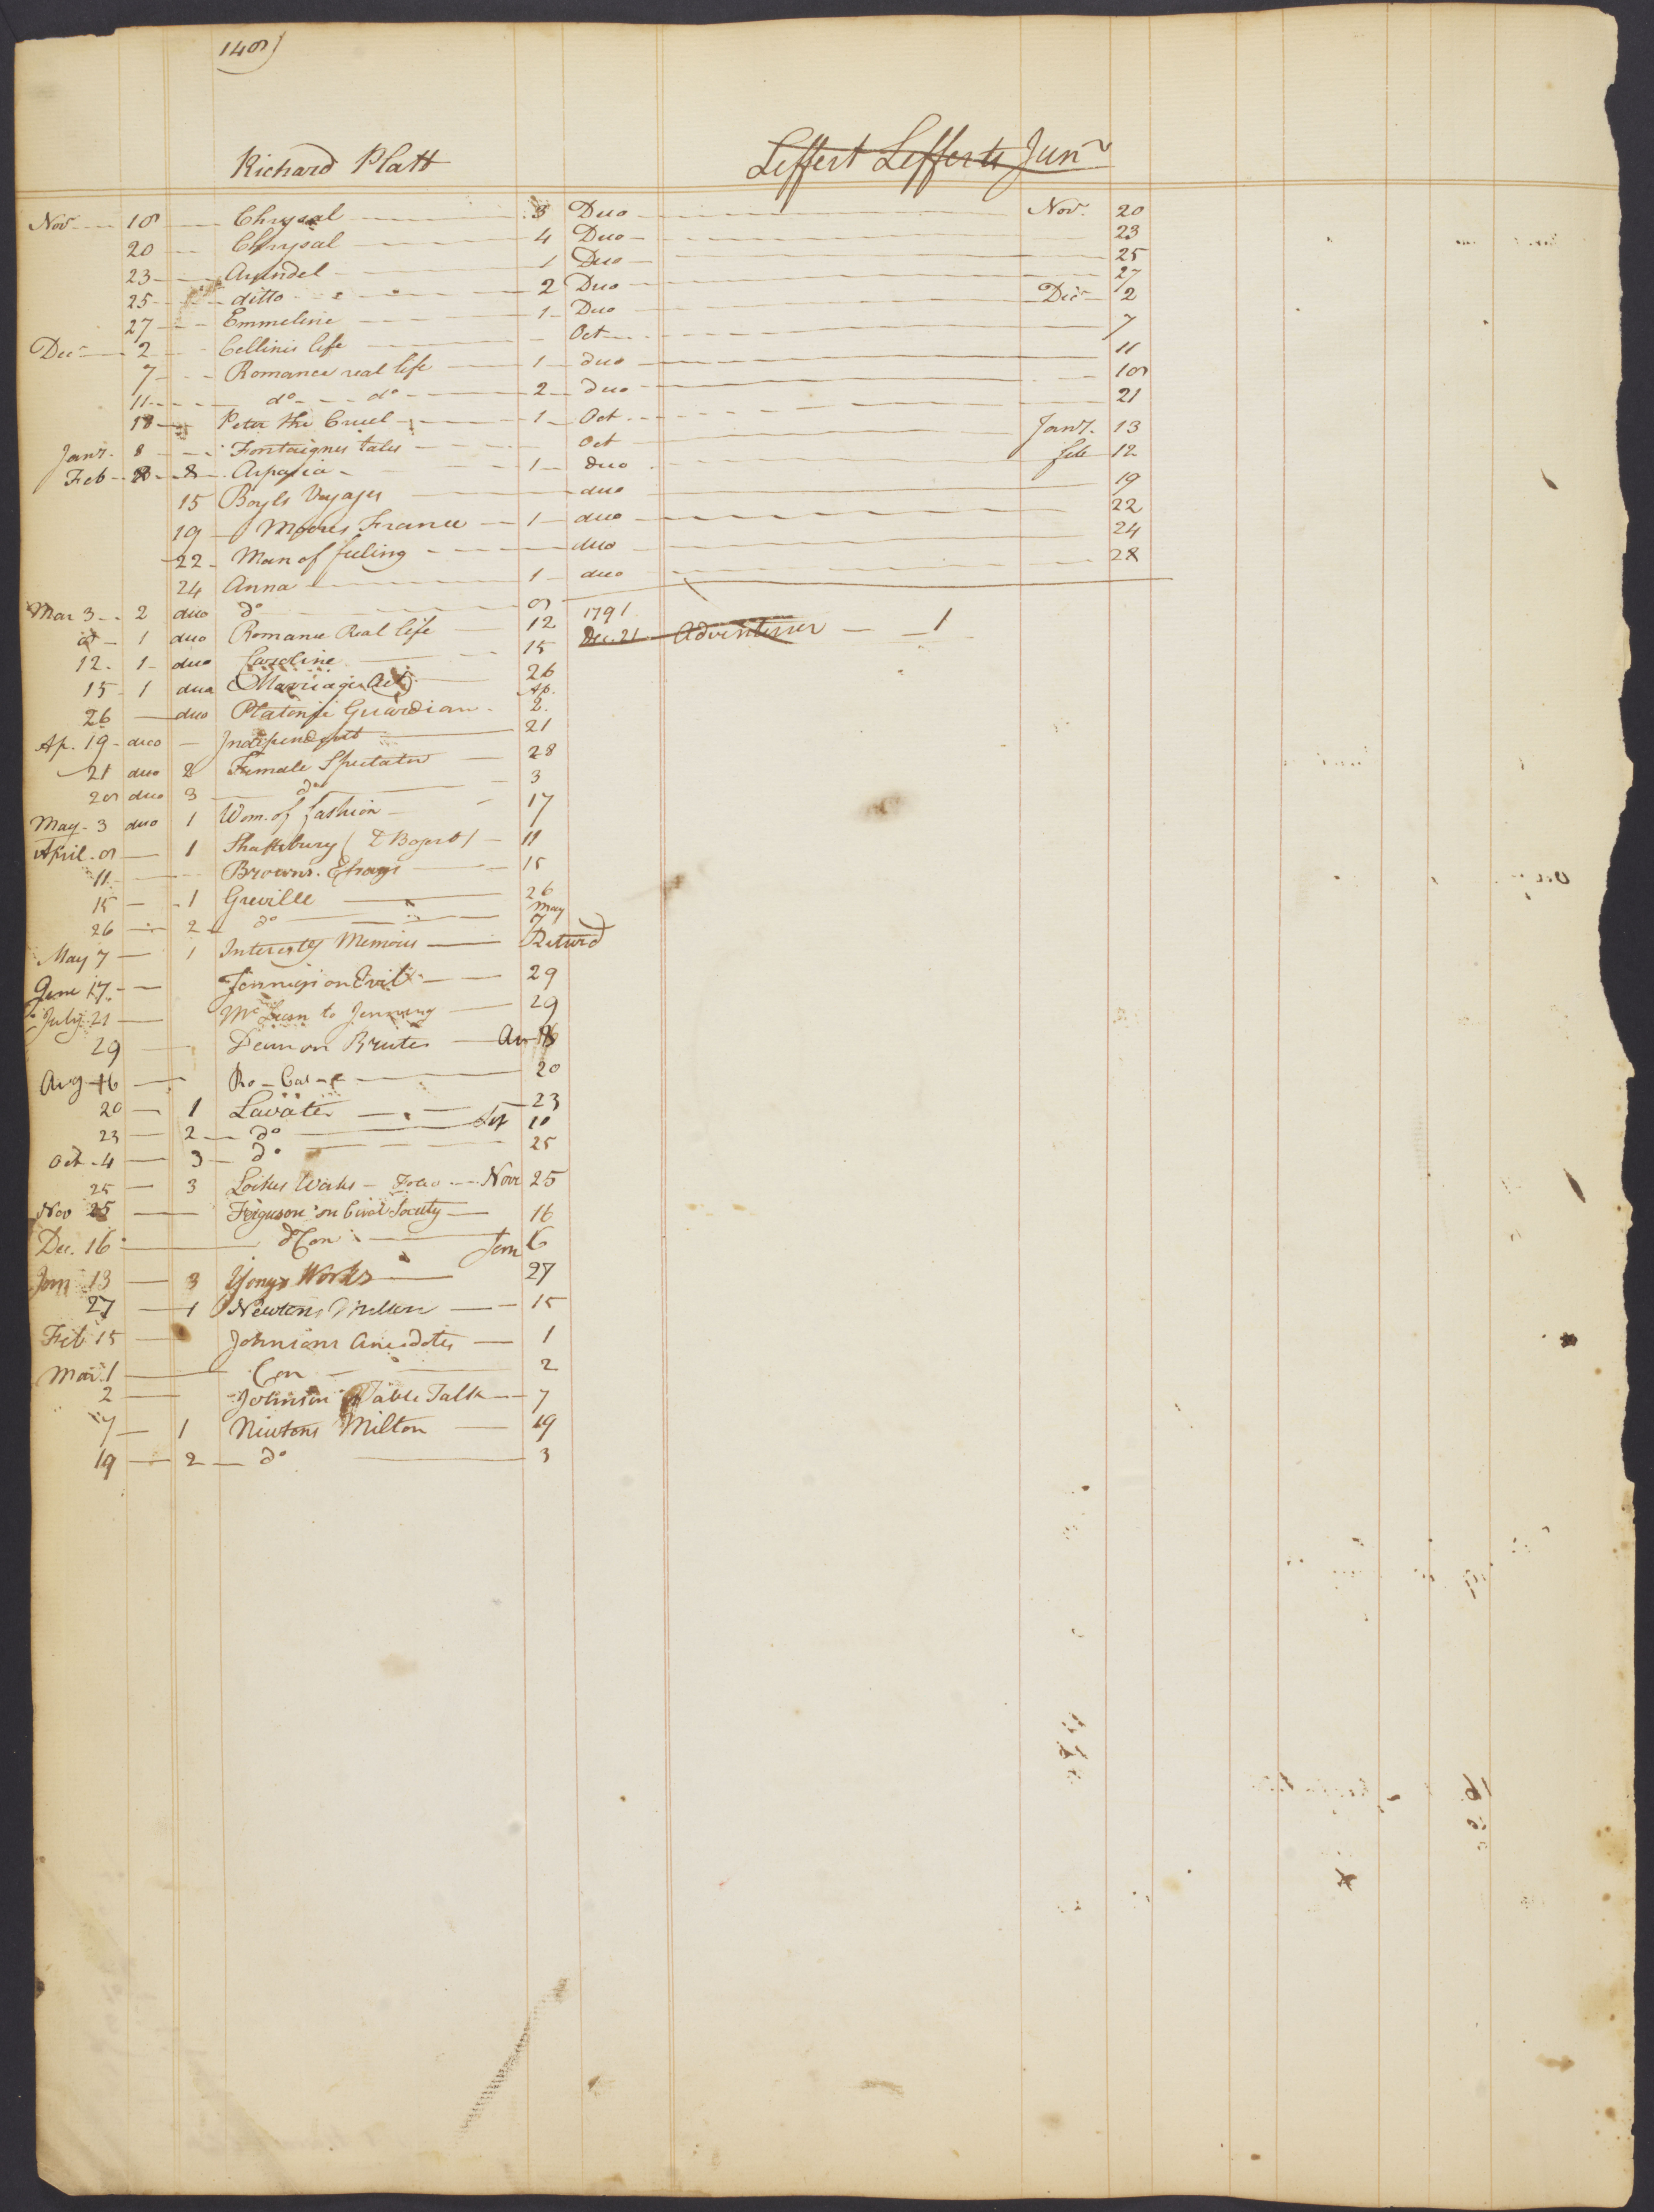 148)
Richard Platt Leffert Lefferts Junr
Novr 18 Chrysal 3 Duo Novr. 20
20 Chrysal 4 Duo 23
23 Arundel 1 Duo 25
25 ditto 2 Duo 27
27 Emmeline 1 Duo Decr 2
Decr 2 Cellinis life Oct 7
7 Romance real life 1 duo 11
11 do do 2 duo 18
18 Peter the Cruel 1 Oct 21
Jany. 8 Fontaignes tales Oct Jany. 13
Feb 8 8 Aspasia 1 duo feb 12
15 Boyls Voyages duo 19
19 Moores France 1 duo 22
22 Man of feeling duo 24
24 Anna 1 duo 28
Mar 3 2 duo do 8
8 1 duo Romance Real life 12 1791
12. 1 duo Caroline 15 Dec. 21 Adventurer 1
15 1 duo (Marriage Act) 26
26 duo Platonic Guardian Ap. 2.
Ap. 19 duo Independent 21
21 duo 2 Female Spectator 28
28 duo 3 do 3
May 3 duo 1 Wom. of fashion 17
April. 8 1 Shaftsbury (D Bogert) 11
11 Browns. Essays 15
15 1 Greville 26
26 2 do May 7
May 7 1 Interestg Memoirs Returd
June 17 Jennigs on Evil 29
July 21 Mc Lean to Jenning 29
29 Dean on Brutes Au 16
Aug 16 Ro Cal 20
20 1 Lavater 23
23 2 do Sep 10
Oct 4 3 do 25
25 3 Lockes Works Folio Novr 25
Nov 25 Ferguson on Civil Society 16
Dec. 16 Con Jan 6
Jan 13 3 Yongs Works 27
27 1 Newtons Milton 15
Feb 15 Johnsons Anecdotes 1
Mar. 1 Con 2
2 Johnson Table Talk 7
7 1 Niwtons Milton 19
19 2 do 3